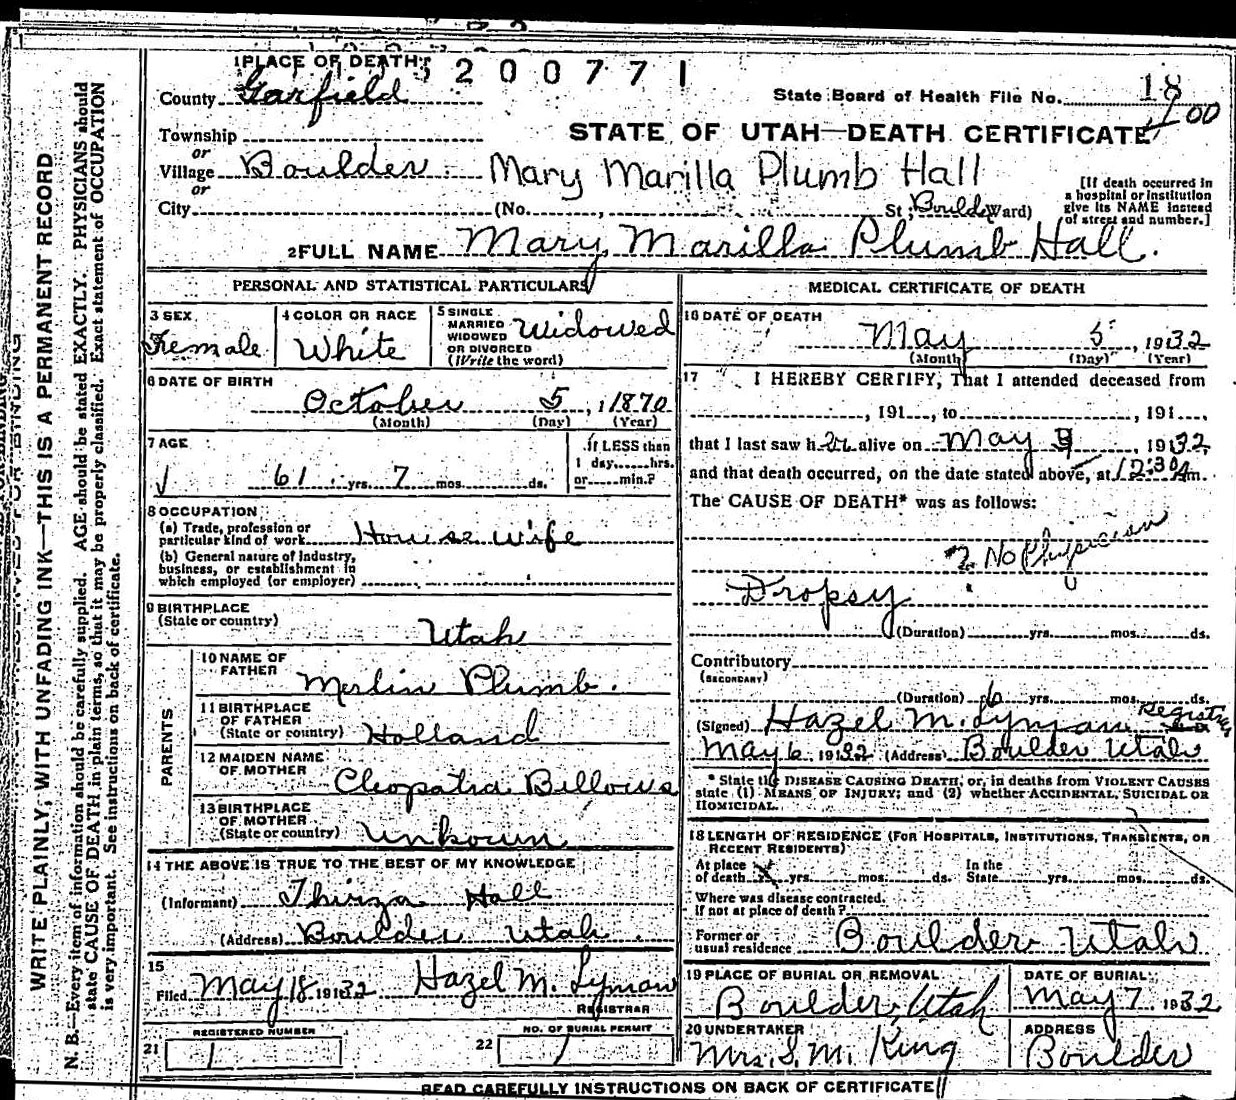 1 PLACE OF DEATH
200771
County Garfield
State Board of Health File No. 18
100
Township
STATE OF UTAH—DEATH CERTIFICATE
or
Village Boulder Mary Marilla Plumb Hall
or
[If death occurred in a hospital or institution give its NAME instead of street and number.]
City (No. , St; Boulder Ward)
2 FULL NAME Mary Marilla Plumb Hall.
PERSONAL AND STATISTICAL PARTICULARS
3 SEX Female
4 COLOR OR RACE White
5 SINGLE MARRIED WIDOWED OR DIVORCED (Write the word) Widowed
6 DATE OF BIRTH
October 5, 1870
(Month) (Day) (Year)
7 AGE
61 yrs. 7 mos. ds.
If LESS than 1 day, hrs. or min.?
8 OCCUPATION
(a) Trade, profession or particular kind of work House wife
(b) General nature of industry, business, or establishment in which employed (or employer)
9 BIRTHPLACE
(State or country) Utah
PARENTS
10 NAME OF FATHER Merlin Plumb.
11 BIRTHPLACE OF FATHER (State or country) Holland
12 MAIDEN NAME OF MOTHER Cleopatra Billows
13 BIRTHPLACE OF MOTHER (State or country) Unkown
14 THE ABOVE IS TRUE TO THE BEST OF MY KNOWLEDGE
(Informant) Thirza Hall
(Address) Boulder Utah
15
Filed May 18 1932 Hazel M. Lyman
REGISTRAR
REGISTERED NUMBER
21 1
NO. OF BURIAL PERMIT
22 1
MEDICAL CERTIFICATE OF DEATH
16 DATE OF DEATH
May 5, 1932
(Month) (Day) (Year)
17 I HEREBY CERTIFY, That I attended deceased from
, 191 , to , 191 ,
that I last saw her alive on May , 1932,
and that death occurred, on the date stated above, at 12:30 A m.
The CAUSE OF DEATH* was as follows:
No Physician
Dropsy
(Duration) yrs. mos. ds.
Contributory
(SECONDARY)
(Duration) yrs. mos. ds.
(Signed) Hazel M. Lyman Registrar
May 6 1932 (Address) Boulder Utah
* State the DISEASE CAUSING DEATH, or, in deaths from VIOLENT CAUSES
state (1) MEANS OF INJURY; and (2) whether ACCIDENTAL, SUICIDAL OR
HOMICIDAL.
18 LENGTH OF RESIDENCE (FOR HOSPITALS, INSTITUTIONS, TRANSIENTS, OR
RECENT RESIDENTS)
At place of death yrs. mos. ds. In the State yrs. mos. ds.
Where was disease contracted,
if not at place of death?
Former or usual residence Boulder Utah
19 PLACE OF BURIAL OR REMOVAL
Boulder, Utah
DATE OF BURIAL
May 7 1932
20 UNDERTAKER
Mrs. S. M. King
ADDRESS
Boulder
READ CAREFULLY INSTRUCTIONS ON BACK OF CERTIFICATE
WRITE PLAINLY, WITH UNFADING INK—THIS IS A PERMANENT RECORD
N. B.—Every item of information should be carefully supplied. AGE should be stated EXACTLY. PHYSICIANS should
state CAUSE OF DEATH in plain terms, so that it may be properly classified. Exact statement of OCCUPATION
is very important. See instructions on back of certificate.